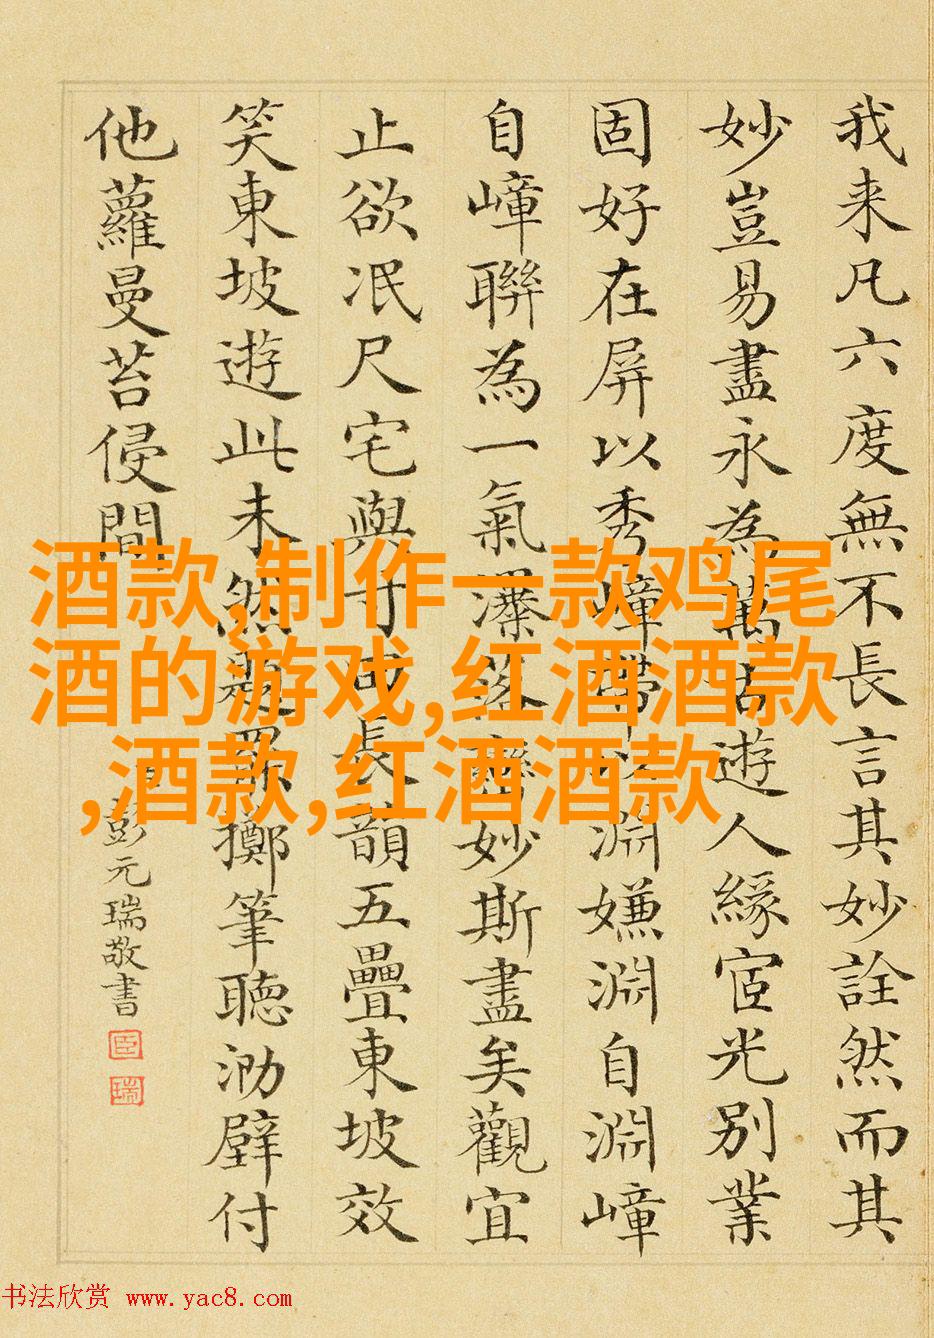 我来凡六度無不長言其妙詮然而其
妙豈易盡永為萬古遊人緣宦光別業
固好在屏以秀嶂帶淵嫌淵自淵嶂
自嶂聯為一氣瀑落妙斯盡矣觀宜
止欲冺尺宅與長韻五疊東坡效
笑東坡遊此未然擲筆聽泐壁付
他蘿曼苔侵間
彭元瑞敬書
臣
瑞
酒款,制作一款鸡尾
酒的游戏,红酒酒款
,酒款,红酒酒款
书法欣赏 www.yac8.com